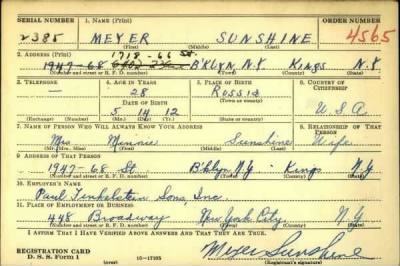 SERIAL NUMBER 1. NAME (Print) ORDER NUMBER
2385 MEYER SUNSHINE 4565
(First) (Middle) (Last)
2. ADDRESS (Print) 1718-66 St.
1947-68 B'KLYN, N.Y KINGS N.Y
(Number and street or R. F. D. number) (Town) (County) (State)
3. TELEPHONE 4. AGE IN YEARS 5. PLACE OF BIRTH 6. COUNTRY OF CITIZENSHIP
— 28 RUSSIA
DATE OF BIRTH (Town or county)
5 14 12 U.S.A
(Exchange) (Number) (Mo.) (Day) (Yr.) (State or country)
7. NAME OF PERSON WHO WILL ALWAYS KNOW YOUR ADDRESS 8. RELATIONSHIP OF THAT PERSON
Mrs Minnie Sunshine Wife
(Mr., Mrs., Miss) (First) (Middle) (Last)
9. ADDRESS OF THAT PERSON
1947-68 St B'klyn N.Y - Kings N.Y
(Number and street or R. F. D. number) (Town) (County) (State)
10. EMPLOYER'S NAME
Paul Finkelstein Sons, Inc.
11. PLACE OF EMPLOYMENT OR BUSINESS
448 Broadway New York City, N.Y
(Number and street or R. F. D. number) (Town) (County) (State)
I AFFIRM THAT I HAVE VERIFIED ABOVE ANSWERS AND THAT THEY ARE TRUE.
REGISTRATION CARD
D. S. S. Form 1 (over) 16-17105 Meyer Sunshine
(Registrant's signature)